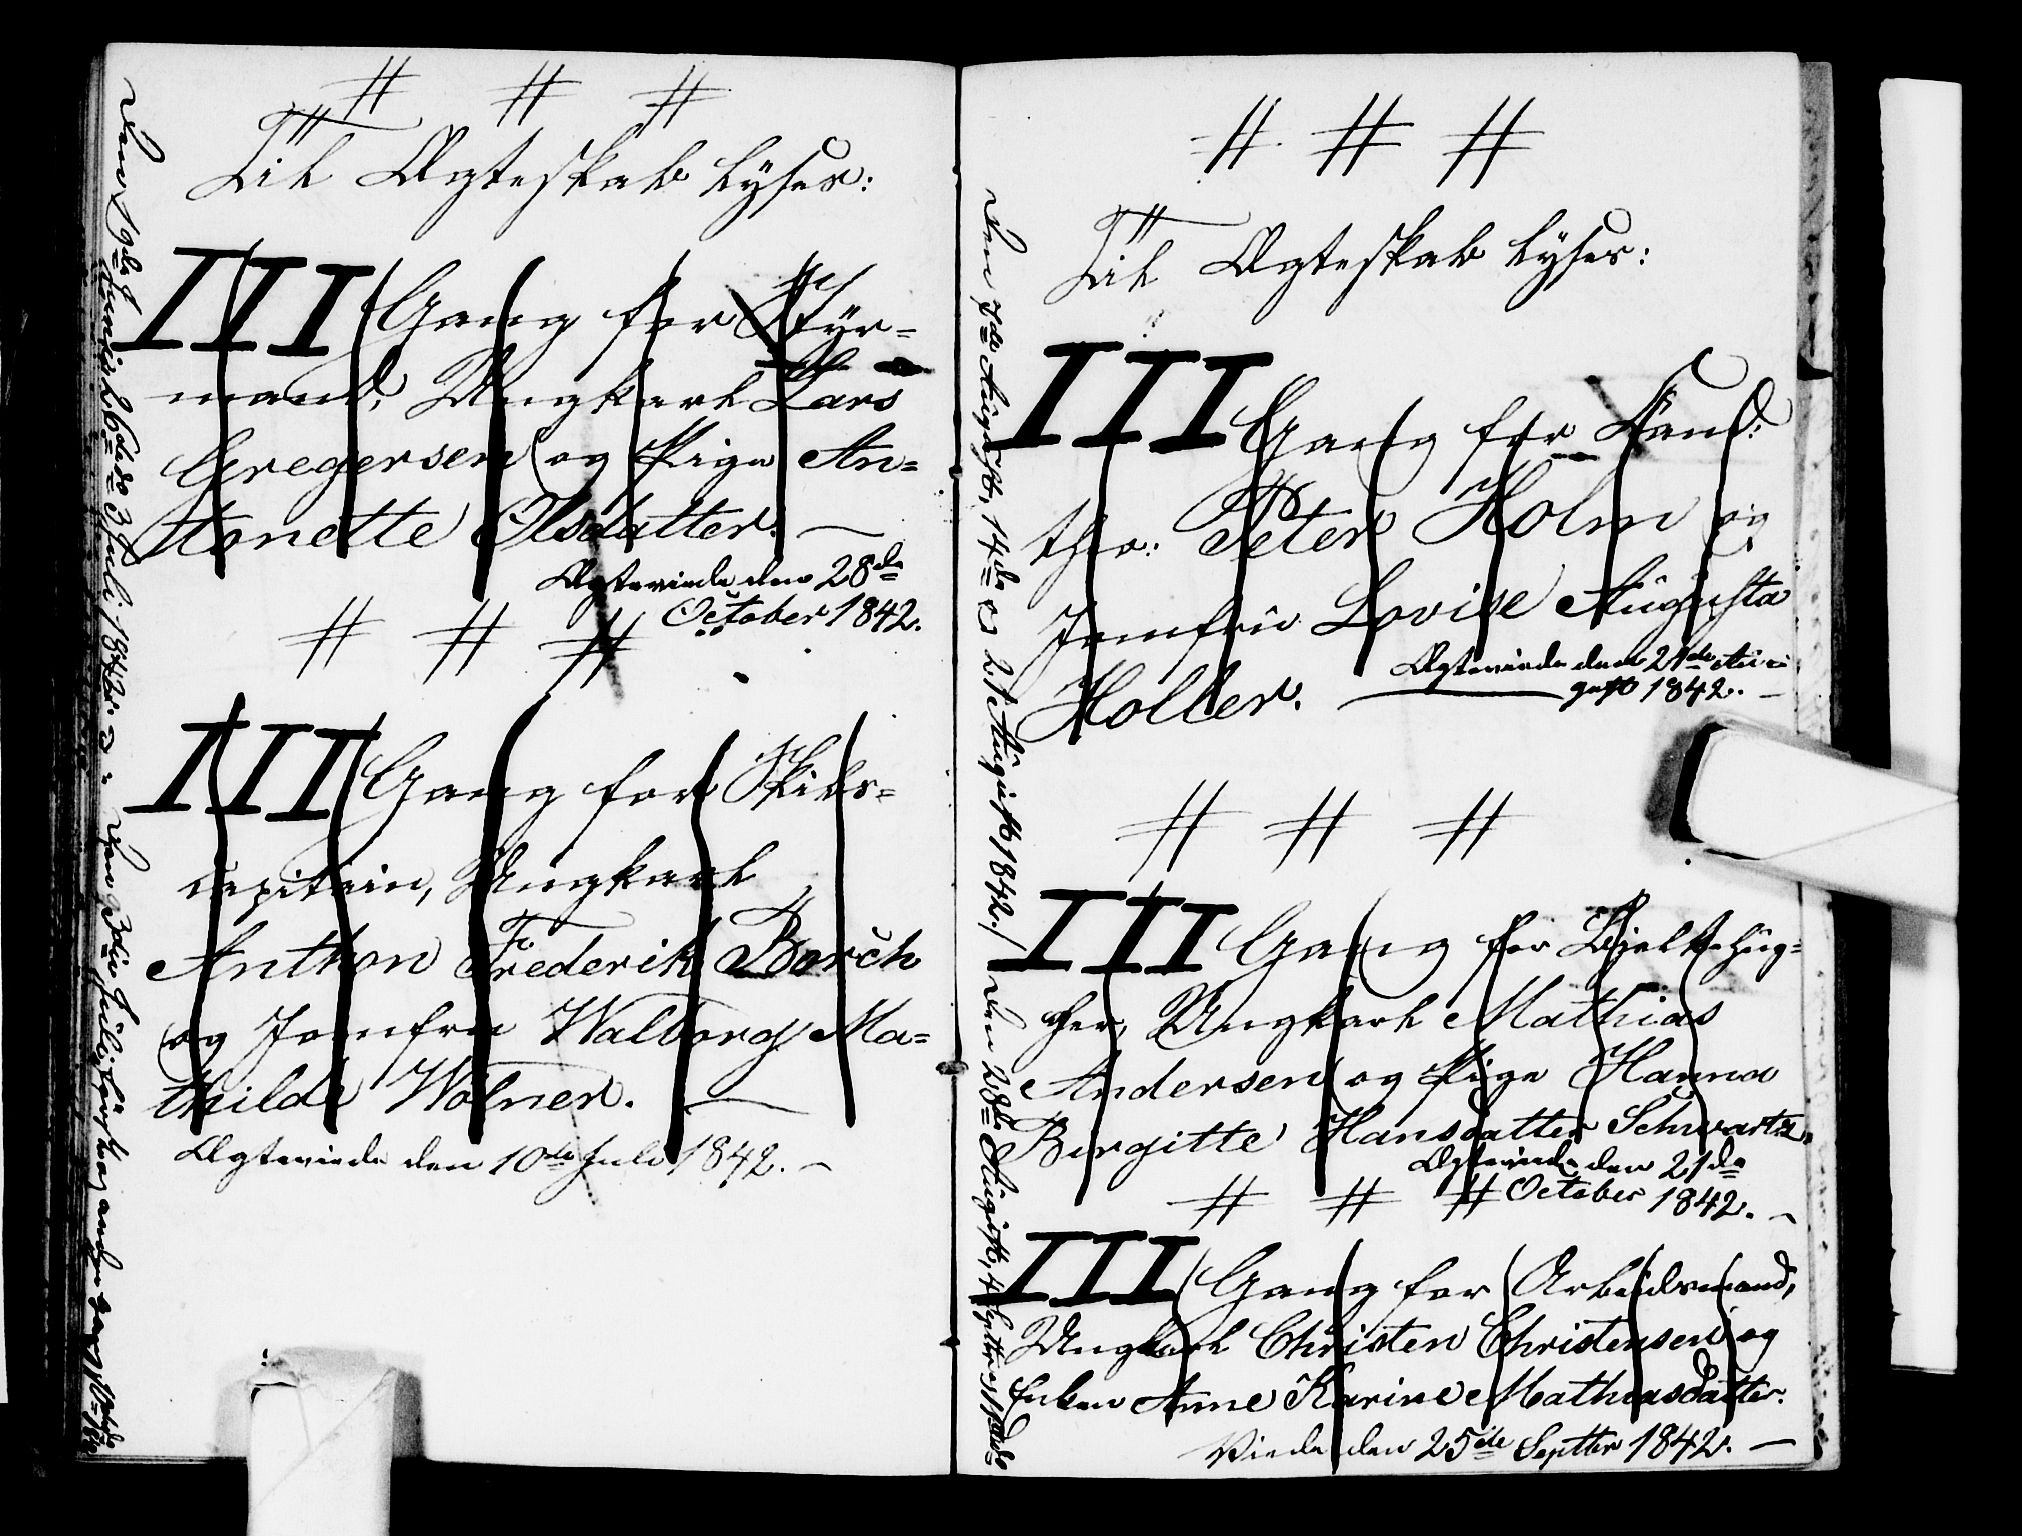 # # #
Til Ægteskab lyses:
III Gang for Styr=
mand, Ungkarl Lars
Gregersen og Pige An=
tonette Olsdatter. —
Ægteviede den 28de
October 1842.
# # #
III Gang for Skibs=
capitain, Ungkarl
Anthon Frederik Borch
og Jomfru Walborg Ma=
thilde Wölner. —
Ægteviede den 10de Juli 1842. —
# # #
Til Ægteskab lyses:
III Gang for Kand:
theo: Peter Holm og
Jomfru Lovise Augusta
Holler.
Ægteviede den 21de Au=
gust 1842. —
# # #
III Gang for Bjelkehug=
ger, Ungkarl Mathias
Andersen og Pige Hanna
Birgitte Hansdatter Schwartz.
Ægteviede den 21de
October 1842. —
# # #
III Gang for Arbeidsmand,
Ungkarl Christen Christensen og
Enken Anne Karine Mathiasdatter.
Viede den 25de Septbr 1842. —
Den 19de Juni, 26de og 3 Juli 1842.
Den 7de August, 14de og 21 August 1842./ Den 28de August, 4 Septbr,